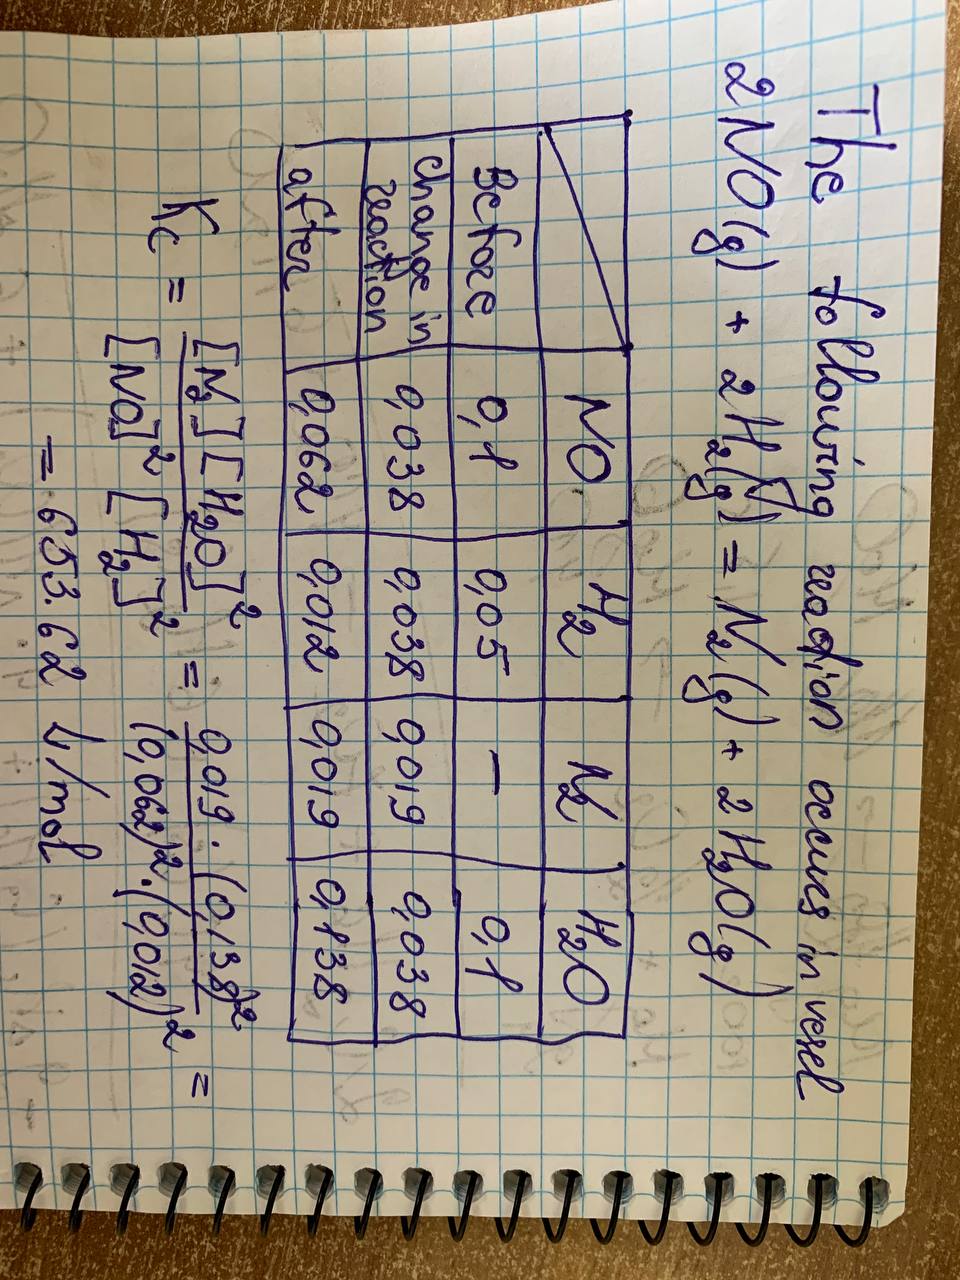 The following reaction occurs in vesel
2NO(g) + 2H₂(g) = N₂(g) + 2H₂O(g)
NO H₂ N₂ H₂O
Before 0,1 0,05 — 0,1
change in reaction 0,038 0,038 0,019 0,038
after 0,062 0,012 0,019 0,138
Kc = [N₂][H₂O]² / [NO]² [H₂]² = 0,019 · (0,138)² / (0,062)² · (0,012)² =
= 653.62 L/mol